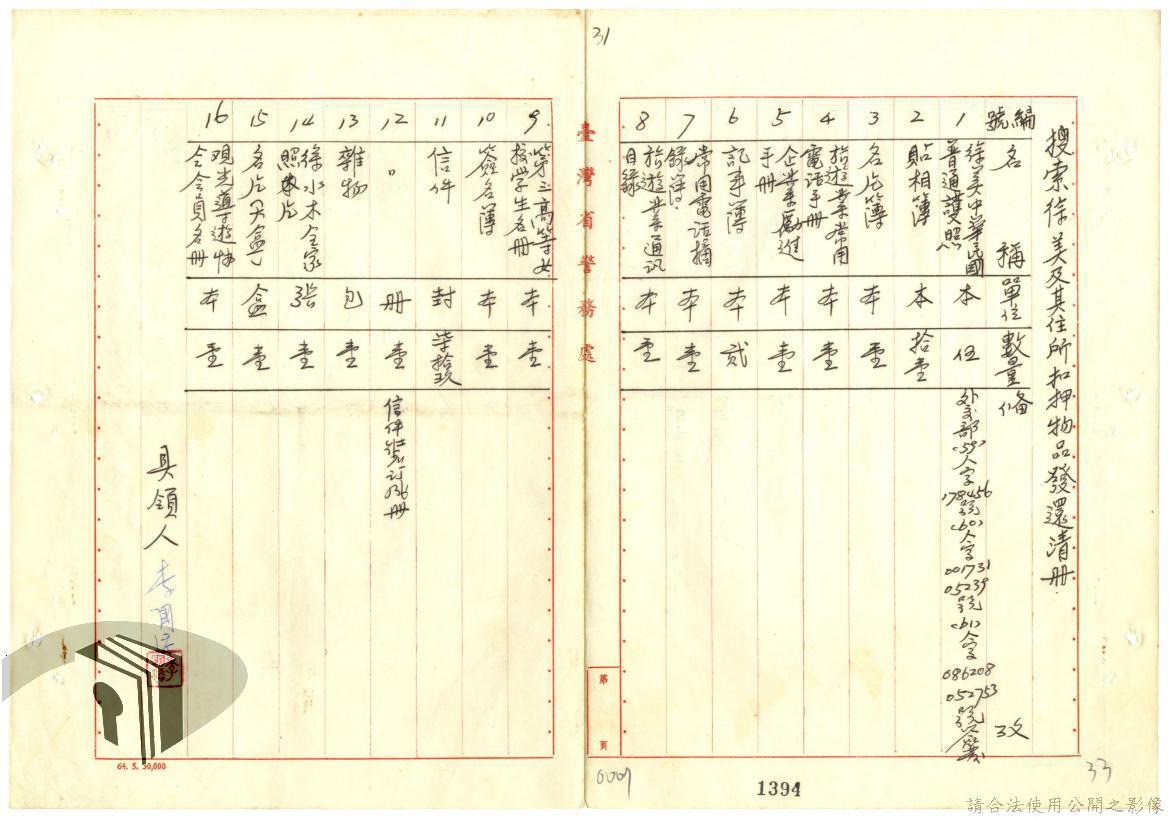 31
搜索徐美及其住所扣押物品發還清册
編號 名稱 單位 數量 备攷
1 徐美中華民國普通護照 本 伍 外交部(59)人字178456號(60)人字001731 05239號(61)人字086208 052753號
2 貼相簿 本 拾壹
3 名片簿 本 壹
4 旅遊業常用電話手册 本 壹
5 企業界勵進手册 本 壹
6 記事簿 本 貳
7 常用電話摘錄簿 本 壹
8 旅遊業通訊目錄 本 壹
臺灣省警務處
第 頁
9 第三高等女校學生名册 本 壹
10 簽名簿 本 壹
11 信件 封 柒拾玖
12 〃 册 壹 信件裝訂成册
13 雜物 包 壹
14 徐水木全家照片 張 壹
15 名片 盒 壹
16 观光導遊协会会員名册 本 壹
具領人 李
64. 5. 50,000
0009
1394
33
請合法使用公開之影像